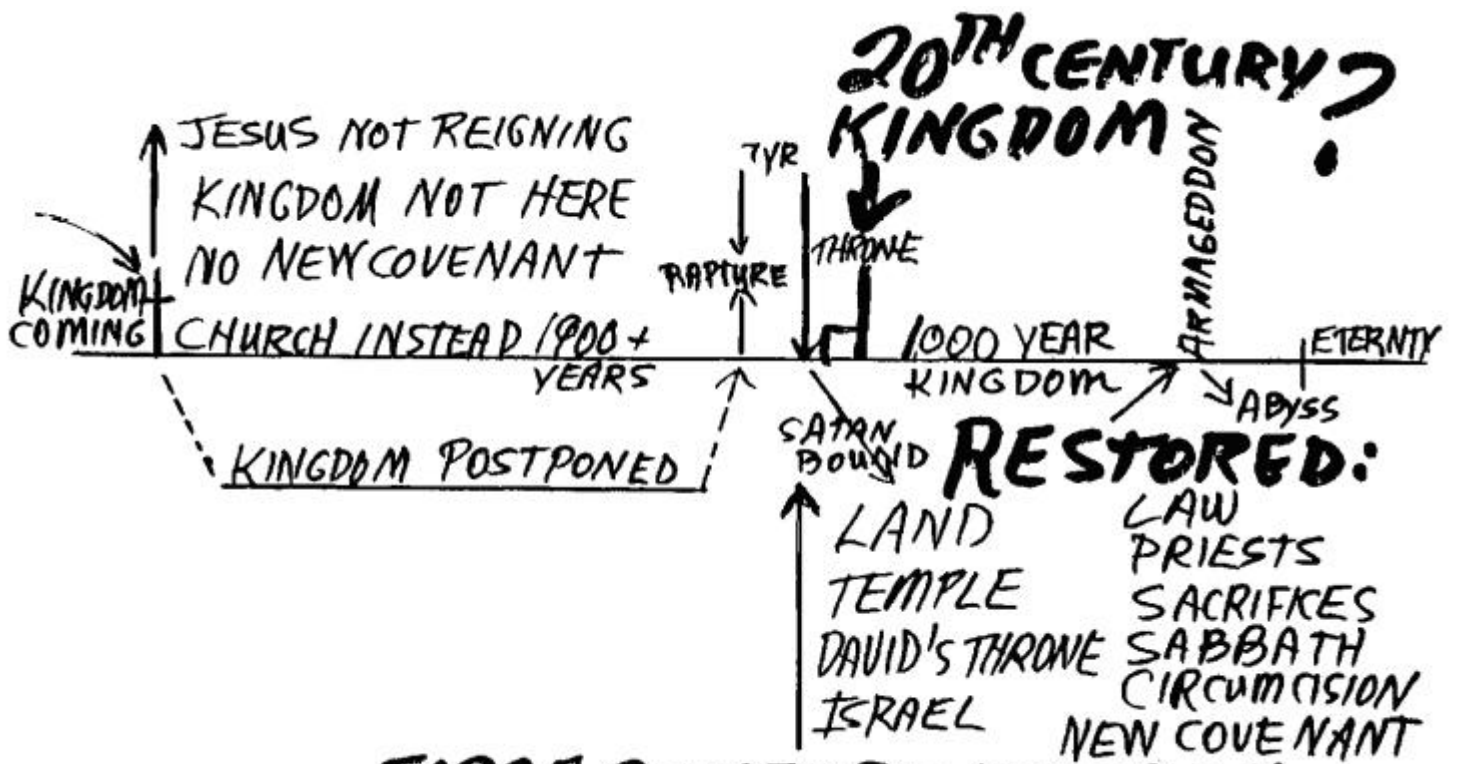 20TH CENTURY
KINGDOM?
JESUS NOT REIGNING
KINGDOM NOT HERE
NO NEW COVENANT
KINGDOM
COMING
CHURCH INSTEAD 1900+
YEARS
7YR
RAPTURE
THRONE
1000 YEAR
KINGDOM
ARMAGEDDON
ETERNTY
ABYSS
KINGDOM POSTPONED
SATAN
BOUND
RESTORED:
LAND
TEMPLE
DAVID'S THRONE
ISRAEL
LAW
PRIESTS
SACRIFICES
SABBATH
CIRCUMCISION
NEW COVENANT